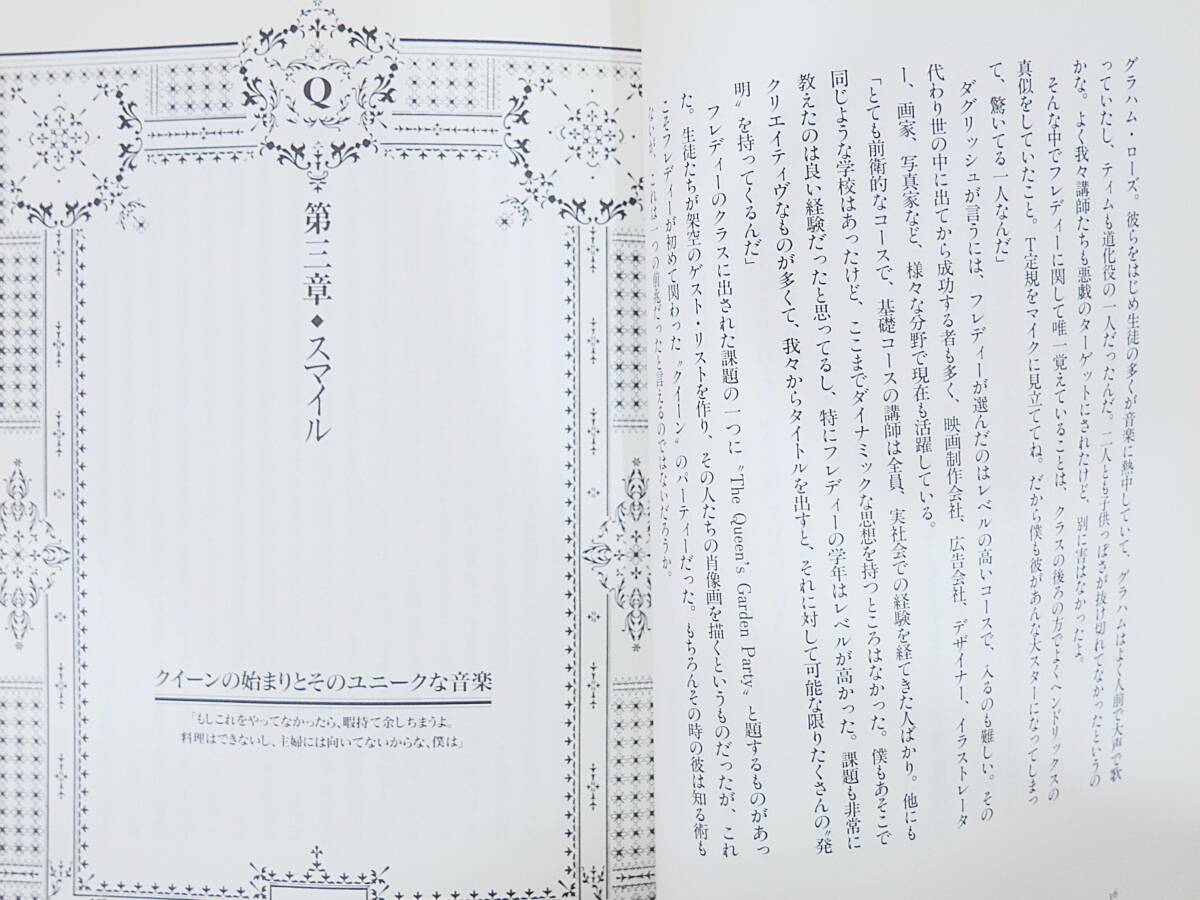 グラハム・ローズ。彼らをはじめ生徒の多くが音楽に熱中していて、グラハムはよく人前で大声で歌
っていたし、ティムも道化役の一人だったんだ。二人とも子供っぽさが抜け切れてなかったというの
かな。よく我々講師たちも悪戯のターゲットにされたけど、別に害はなかったよ。
そんな中でフレディーに関して唯一覚えていることは、クラスの後ろの方でよくヘンドリックスの
真似をしていたこと。T定規をマイクに見立ててね。だから僕も彼があんな大スターになってしまっ
て、驚いてる一人なんだ」
ダグリッシュが言うには、フレディーが選んだのはレベルの高いコースで、入るのも難しい。その
代わり世の中に出てから成功する者も多く、映画制作会社、広告会社、デザイナー、イラストレータ
ー、画家、写真家など、様々な分野で現在も活躍している。
「とても前衛的なコースで、基礎コースの講師は全員、実社会での経験を経てきた人ばかり。他にも
同じような学校はあったけど、ここまでダイナミックな思想を持つところはなかった。僕もあそこで
教えたのは良い経験だったと思ってるし、特にフレディーの学年はレベルが高かった。課題も非常に
クリエイティヴなものが多くて、我々からタイトルを出すと、それに対して可能な限りたくさんの〝発
明〟を持ってくるんだ」
フレディーのクラスに出された課題の一つに〝The Queen's Garden Party〟と題するものがあっ
た。生徒たちが架空のゲスト・リストを作り、その人たちの肖像画を描くというものだったが、これ
こそフレディーが初めて関わった〝クイーン〟のパーティーだった。もちろんその時の彼は知る術も
ないが、これは一つの前兆だったと言えるのではないだろうか。
16
Q
第三章◆スマイル
クイーンの始まりとそのユニークな音楽
「もしこれをやってなかったら、暇持て余しちまうよ。
料理はできないし、主婦には向いてないからな、僕は」